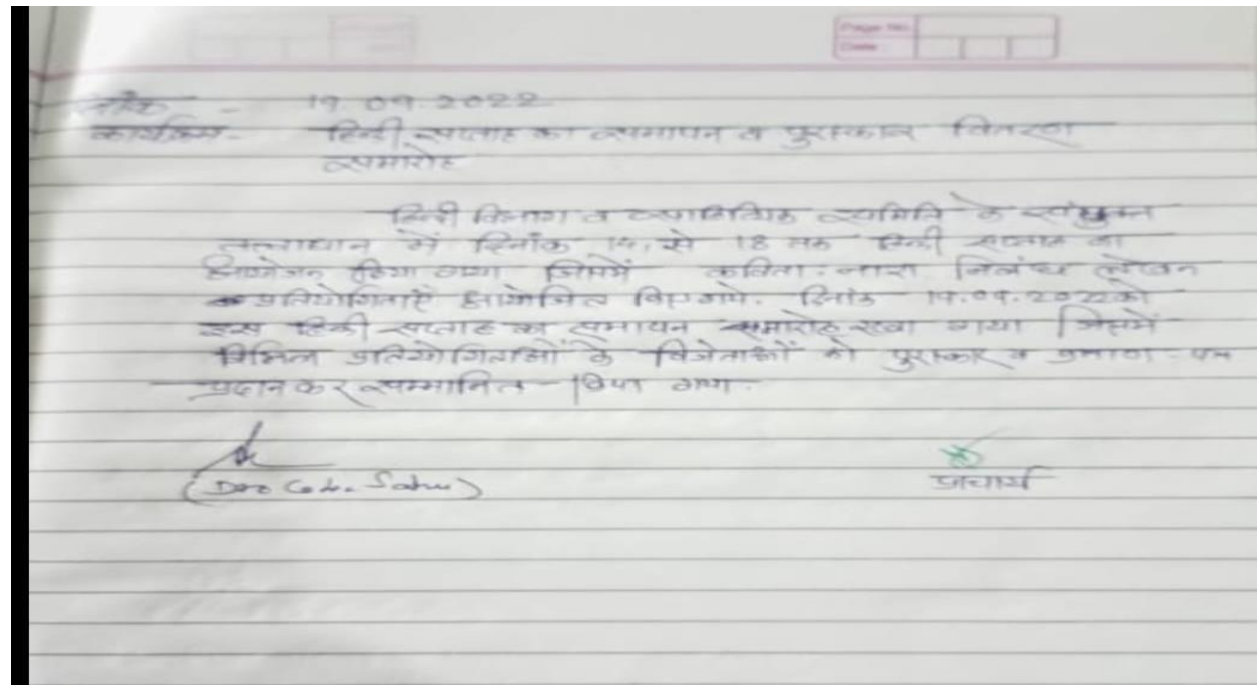 Page No.
Date
दिनाँक - 19.09.2022
कार्यक्रम- हिन्दी सप्ताह का समापन व पुरस्कार वितरण
समारोह
हिन्दी विभाग व साहित्यिक समिति के संयुक्त
तत्वाधान में दिनाँक 14 से 18 तक हिन्दी सप्ताह का
आयोजन किया गया जिसमें कविता नारा निबंध लेखन
प्रतियोगिताएँ आयोजित किए गये. दिनांक 19.09.2022को
इस हिन्दी सप्ताह का समापन समारोह रखा गया जिसमें
विभिन्न प्रतियोगिताओं के विजेताओं को पुरस्कार व प्रमाण-पत्र
प्रदान कर सम्मानित किया गया.
Sahu)
प्राचार्य